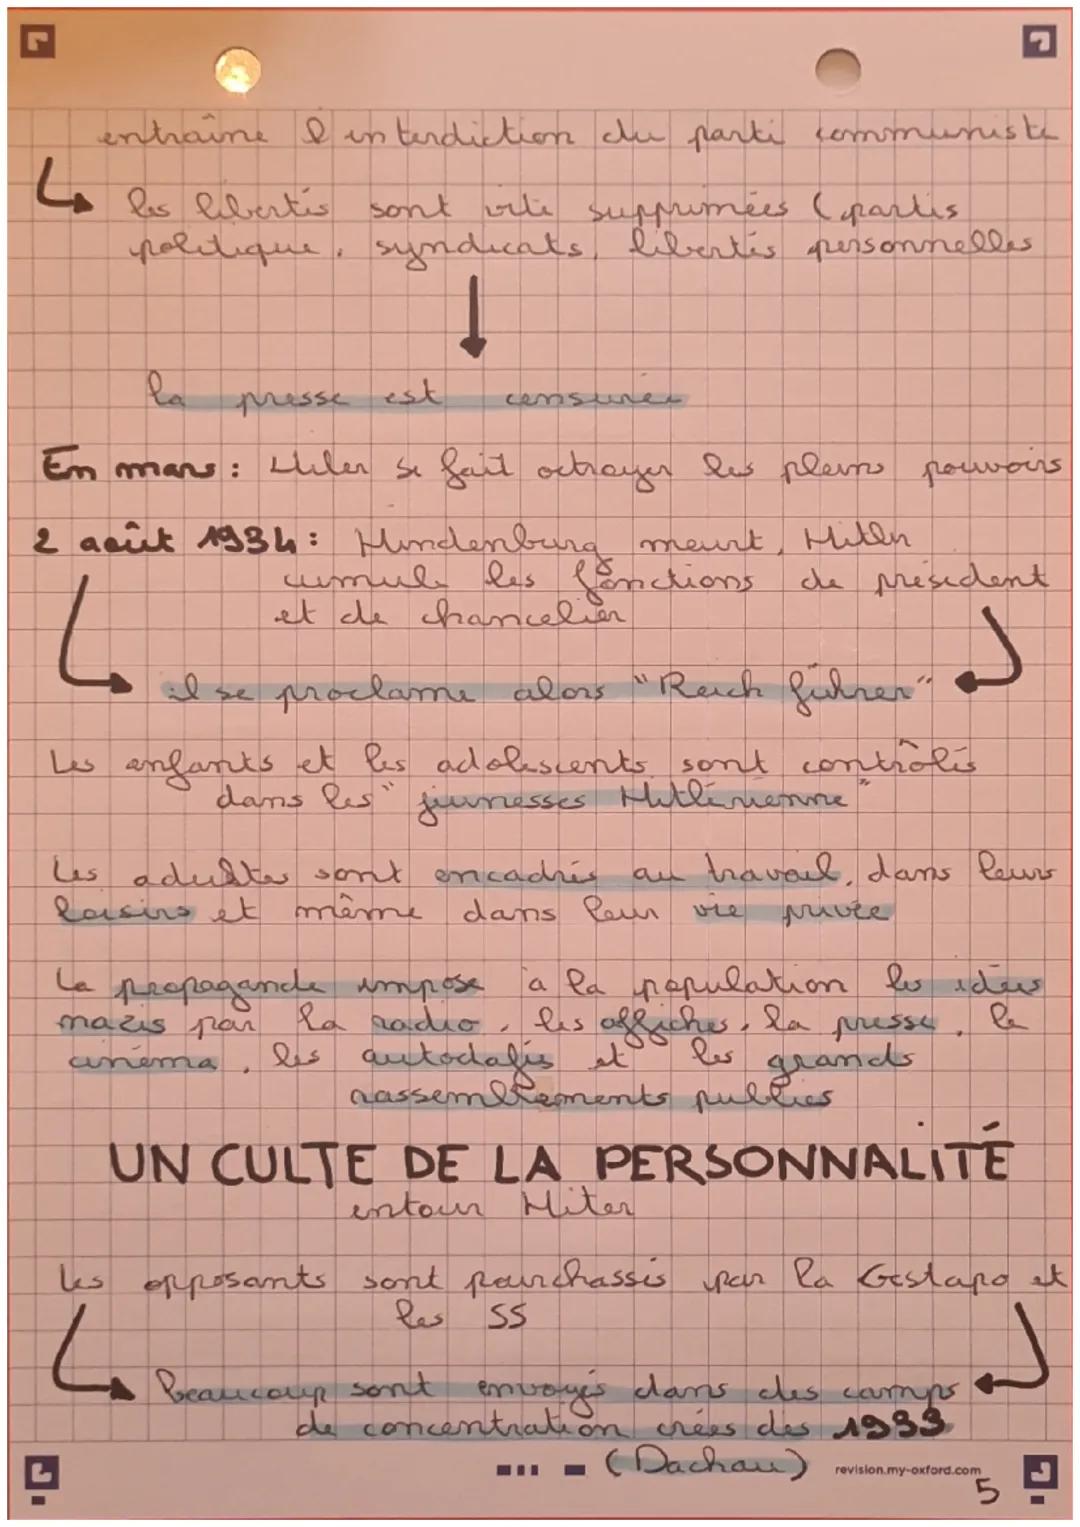 entraîne l'interdiction du parti communiste
les libertés sont vite supprimées (partis
politique, syndicats, libertés personnelles
la presse est censurée
En mars : Hiler se fait octroyer les pleins pouvoirs
2 août 1934 : Hindenburg meurt, Hitler
cumule les fonctions de président
et de chancelier
il se proclame alors "Reich führer"
Les enfants et les adolescents sont contrôlés
dans les "jeunesses Hitlérienne"
Les adultes sont encadrés au travail, dans leurs
loisirs et même dans leur vie privée
La propagande impose à la population les idées
nazis par la radio, les affiches, la presse, le
cinéma, les autodafés et les grands
rassemblements publics
UN CULTE DE LA PERSONNALITÉ
entour Hiter
les opposants sont pourchassés par la Gestapo et
les SS
beaucoup sont envoyés dans des camps
de concentration crées dès 1933
(Dachau)
revision.my-oxford.com
5